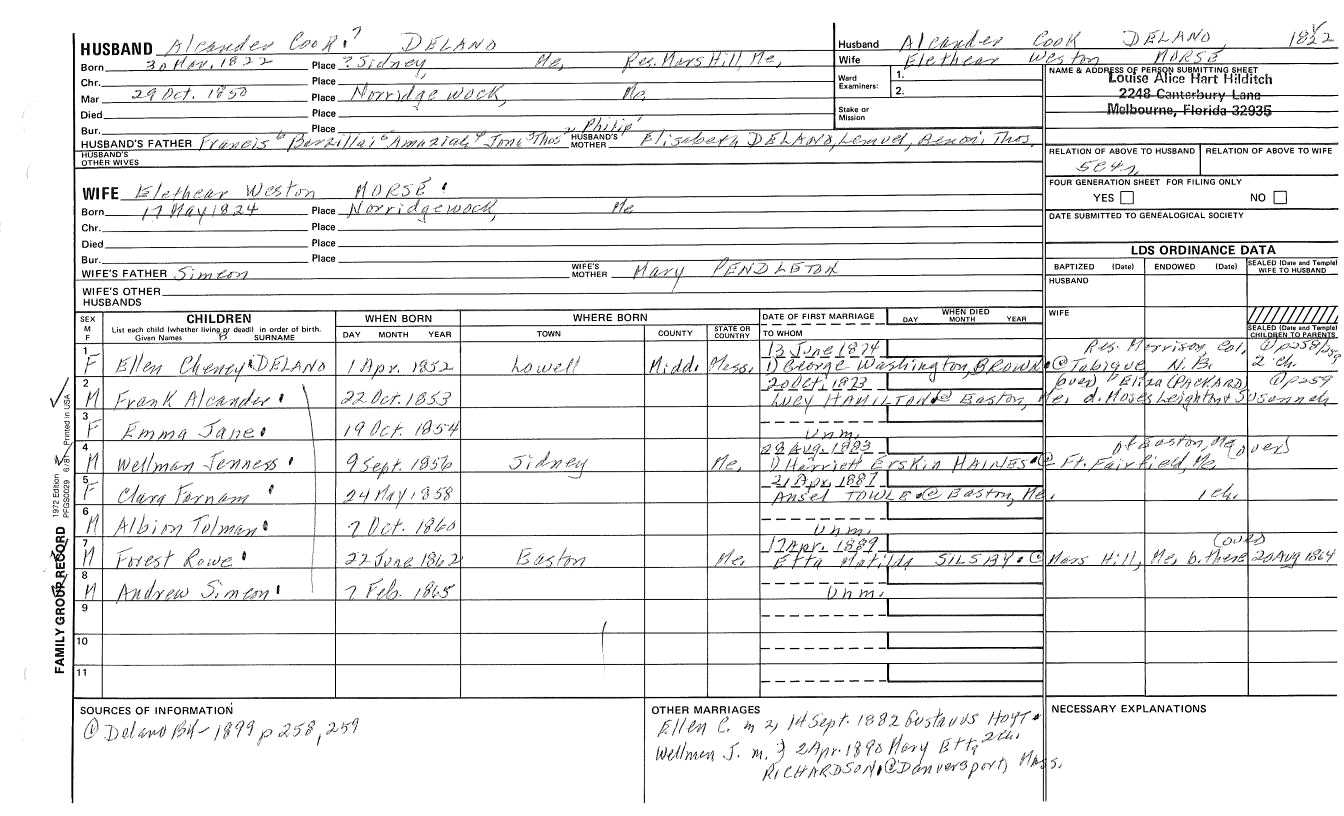 HUSBAND Alcander Cook ? DELANO
Born 30 Mar. 1822 Place ? Sidney Me, Res. Mars Hill, Me,
Chr. Place
Mar 29 Oct. 1850 Place Norridgewock, Me
Died Place
Bur. Place
HUSBAND'S FATHER Francis⁶ Barzillai⁵ Amaziah⁴ Jona³ Thos² Philip¹ HUSBAND'S MOTHER Elizabeth DELANO, Lemuel, Benoni, Thos,
HUSBAND'S OTHER WIVES
Husband Alcander Cook DELANO, 1822
Wife Elethear Weston MORSE
Ward Examiners: 1.
2.
Stake or Mission
NAME & ADDRESS OF PERSON SUBMITTING SHEET
Louise Alice Hart Hilditch
2248 Canterbury Lane
Melbourne, Florida 32935
RELATION OF ABOVE TO HUSBAND RELATION OF ABOVE TO WIFE
5C4r,
FOUR GENERATION SHEET FOR FILING ONLY
YES NO
DATE SUBMITTED TO GENEALOGICAL SOCIETY
WIFE Elethear Weston MORSE
Born 17 May 1824 Place Norridgewock, Me
Chr. Place
Died Place
Bur. Place
WIFE'S FATHER Simeon WIFE'S MOTHER Mary PENDLETON
WIFE'S OTHER HUSBANDS
LDS ORDINANCE DATA
BAPTIZED (Date) ENDOWED (Date) SEALED (Date and Temple) WIFE TO HUSBAND
HUSBAND
WIFE
SEALED (Date and Temple) CHILDREN TO PARENTS
SEX M F
CHILDREN
List each child (whether living or dead) in order of birth.
Given Names SURNAME
WHEN BORN
DAY MONTH YEAR
WHERE BORN
TOWN COUNTY STATE OR COUNTRY
DATE OF FIRST MARRIAGE
TO WHOM
WHEN DIED
DAY MONTH YEAR
1 13 June 1874 Res. Morrison Col, @p258/259
F Ellen Cheney DELANO 1 Apr. 1852 Lowell Midd. Mass. 1) George Washington, BROWN @ Tobique N.B. 2 ch.
2 20 Oct. 1873 (over) Eliza (PACKARD) @p259
M Frank Alcander 22 Oct. 1853 Lucy HAMILTON @ Easton, Me, d. Moses Leighton & Susannah
3
F Emma Jane 19 Oct. 1854 Unm.
4 28 Aug. 1883 of Easton, Me (over)
M Wellman Jenness 9 Sept. 1856 Sidney Me, 1) Harriett Erskin HAINES @ Ft. Fairfield, Me.
5 21 Apr. 1887
F Clara Farnam 24 May 1858 Ansel TOWLE @ Easton, Me, 1 ch.
6
M Albion Tolman 7 Oct. 1860 Unm.
7 17 Apr. 1889 (over)
M Forest Rowe 22 June 1862 Easton Me, Etta Matilda SILSBY @ Mars Hill, Me, b. there 20 Aug 1864
8
M Andrew Simeon 7 Feb. 1865 Unm.
9
10
11
FAMILY GROUP RECORD 1972 Edition 6/81 Printed in USA PFGS0029
SOURCES OF INFORMATION
@ Delano Bk - 1899 p 258, 259
OTHER MARRIAGES
Ellen C. m 2) 14 Sept. 1882 Gustavus HOYT
Wellman J. m. 2) 2 Apr. 1890 Mary Etta 2 ch.
RICHARDSON @ Danversport, Mass.
NECESSARY EXPLANATIONS